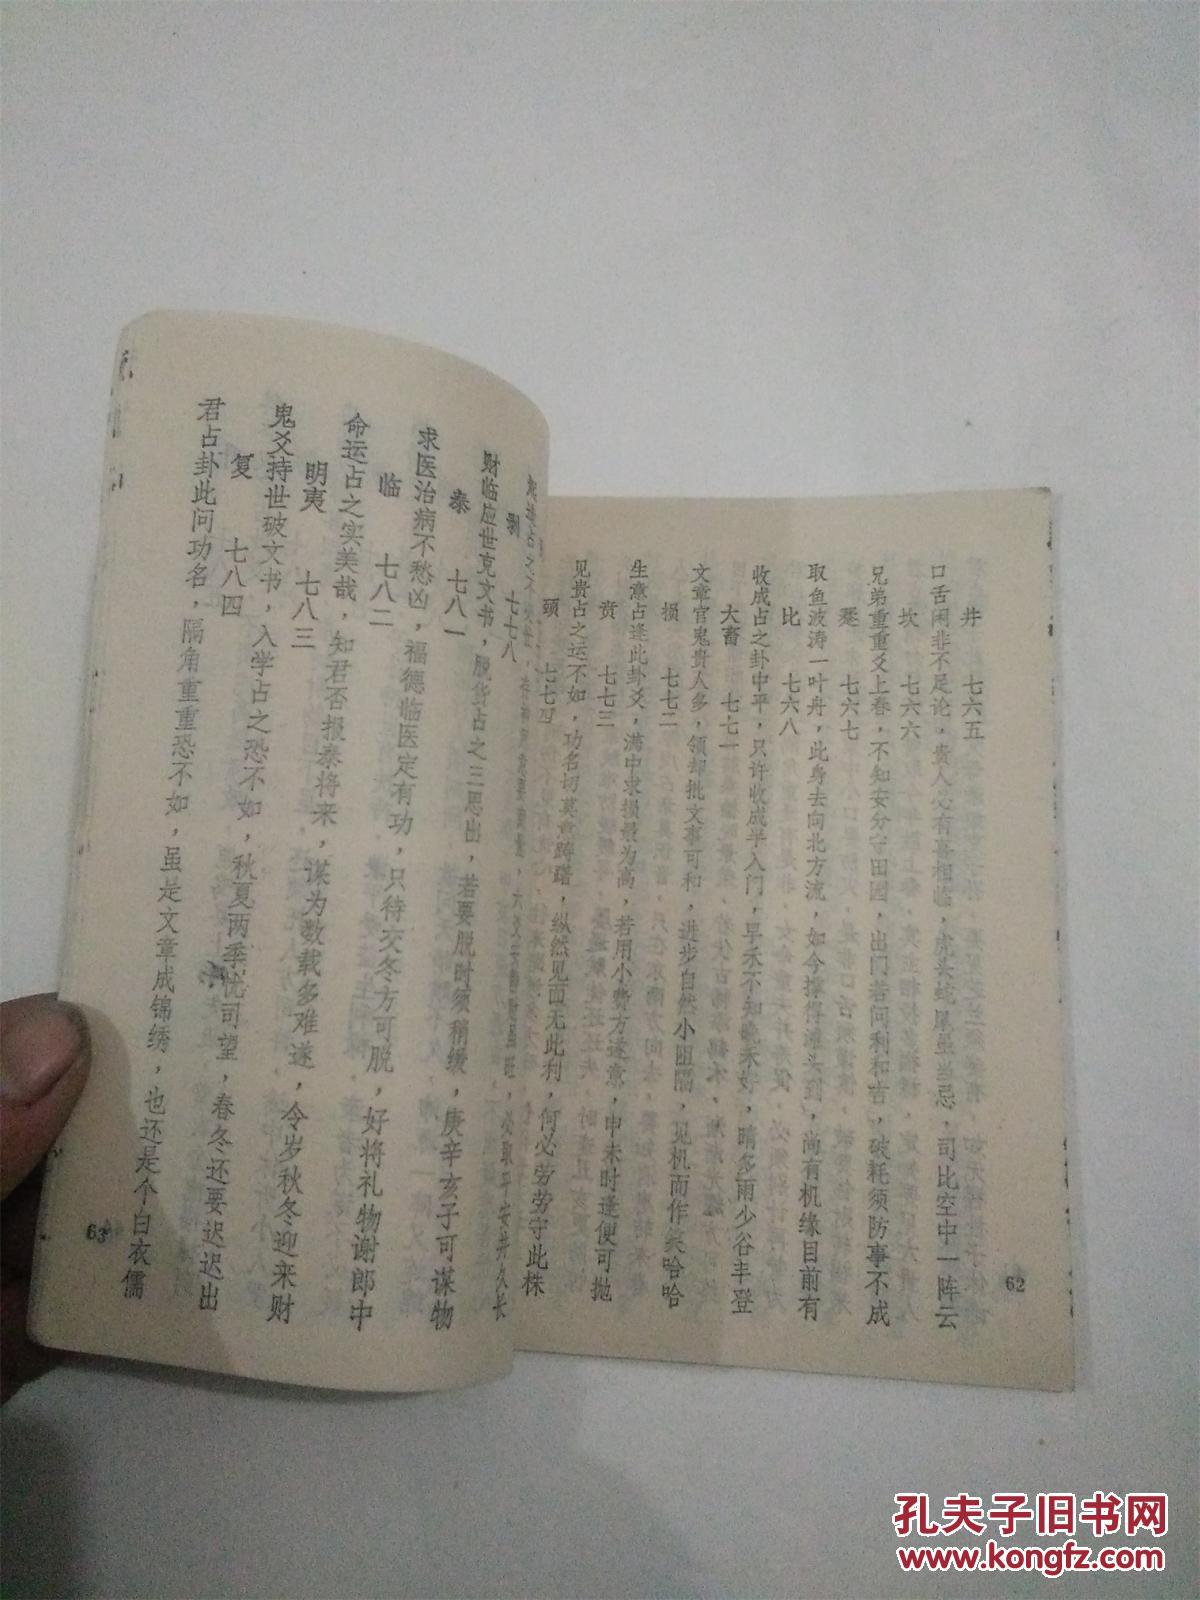 井 七六五
口舌闲非不足论，贵人必有喜相临，虎头蛇尾虽当忌，司比空中一阵云
坎 七六六
兄弟重重爻上春，不知安分守田园，出门若问利和吉，破耗须防事不成
蹇 七六七
取鱼波涛一叶舟，此身去向北方流，如今撑得滩头住，尚有机缘目前有
比 七六八
收成占之卦中平，只许收成半入门，早禾不知晚禾好，晴多雨少谷丰登
大畜 七七一
文章官鬼贵人多，领却批文事可和，进步自然小阻隔，见机而作笑哈哈
损 七七二
生意占逢此卦爻，满中求损最为高，若用小费方遂意，申未时逢便可抛
贲 七七三
见贵占之运不如，功名切莫意踌躇，纵然见面无此利，何必劳劳守此株
颐 七七四
62
剥 七七八
财临应世克文书，脱货占之三思出，若要脱时须稍缓，庚辛亥子可谋物
泰 七八一
求医治病不愁凶，福德临医定有功，只待交冬方可脱，好将礼物谢郎中
临 七八二
命运占之实美哉，知君否报泰将来，谋为数载多难遂，令岁秋冬迎来财
明夷 七八三
鬼爻持世破文书，入学占之恐不如，秋夏两季忧司望，春冬还要迟迟出
复 七八四
君占卦此问功名，隔角重重恐不如，虽是文章成锦绣，也还是个白衣儒
63
孔夫子旧书网
www.kongfz.com